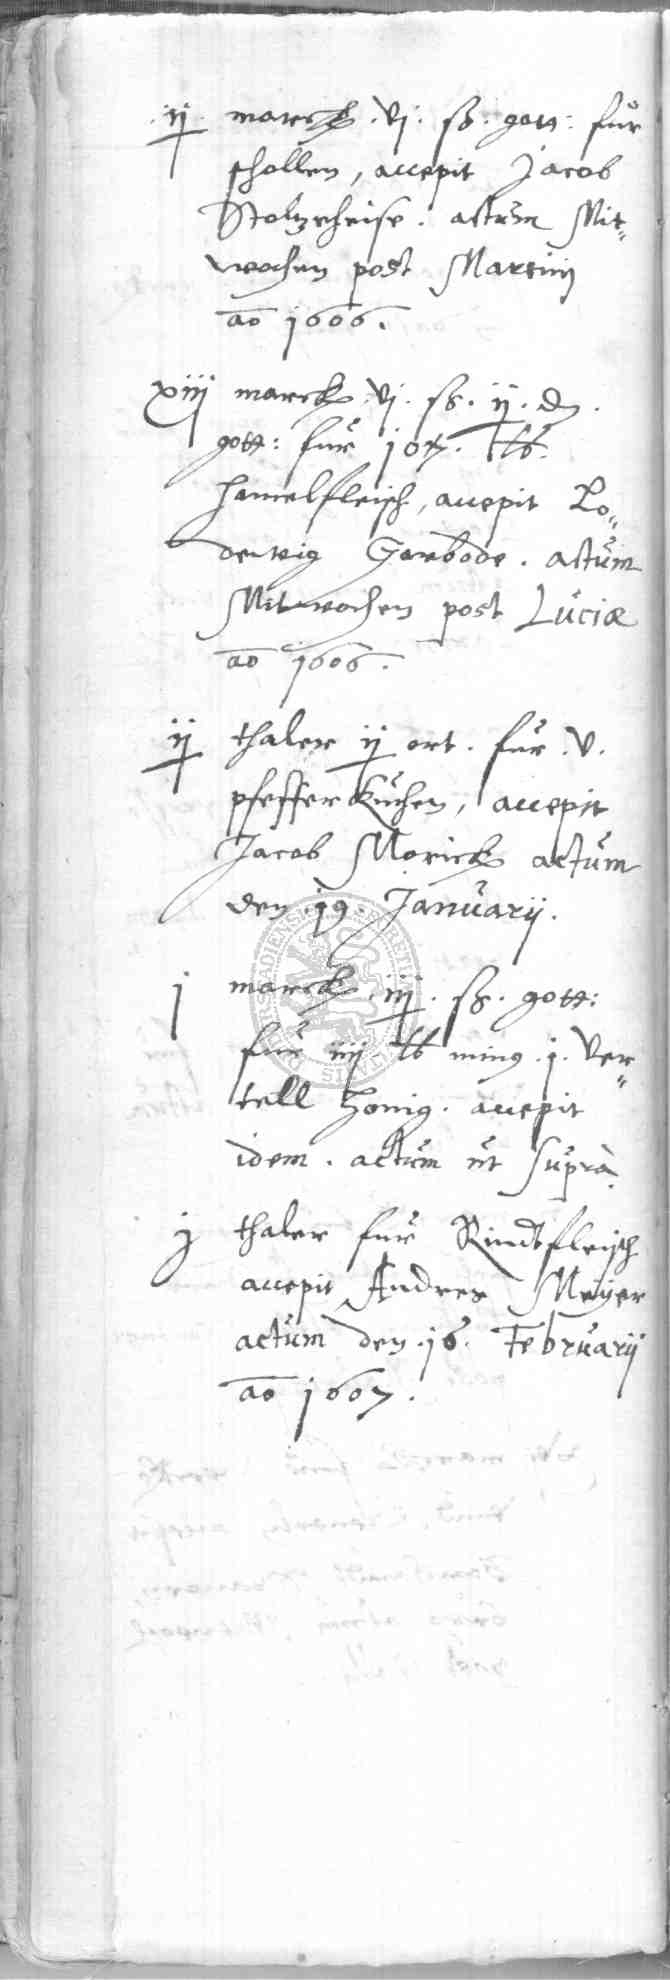 ij marck vj ß. gott: für
schollen, accepit Jacob
Stoltzeheise. actum Mit„
wochen post Martinj
ao 1606.
xiij marck vj ß. ij. d.
gott: für 107. lb.
hamelfleisch, accepit Lo„
dewig Garbode. actum
Mitwochen post Luciæ
ao 1606.
ij thaler ij ort. für v.
pfefferkuchen, accepit
Jacob Morick actum
den 19. Januarij.
j marck iij. ß. gott:
für iiij lb ming. j. ver„
tell honig. accepit
idem. actum ut suprà.
j thaler für Rindtfleisch
accepit Andres Meyer
actum den 16. Februarij
ao 1607.